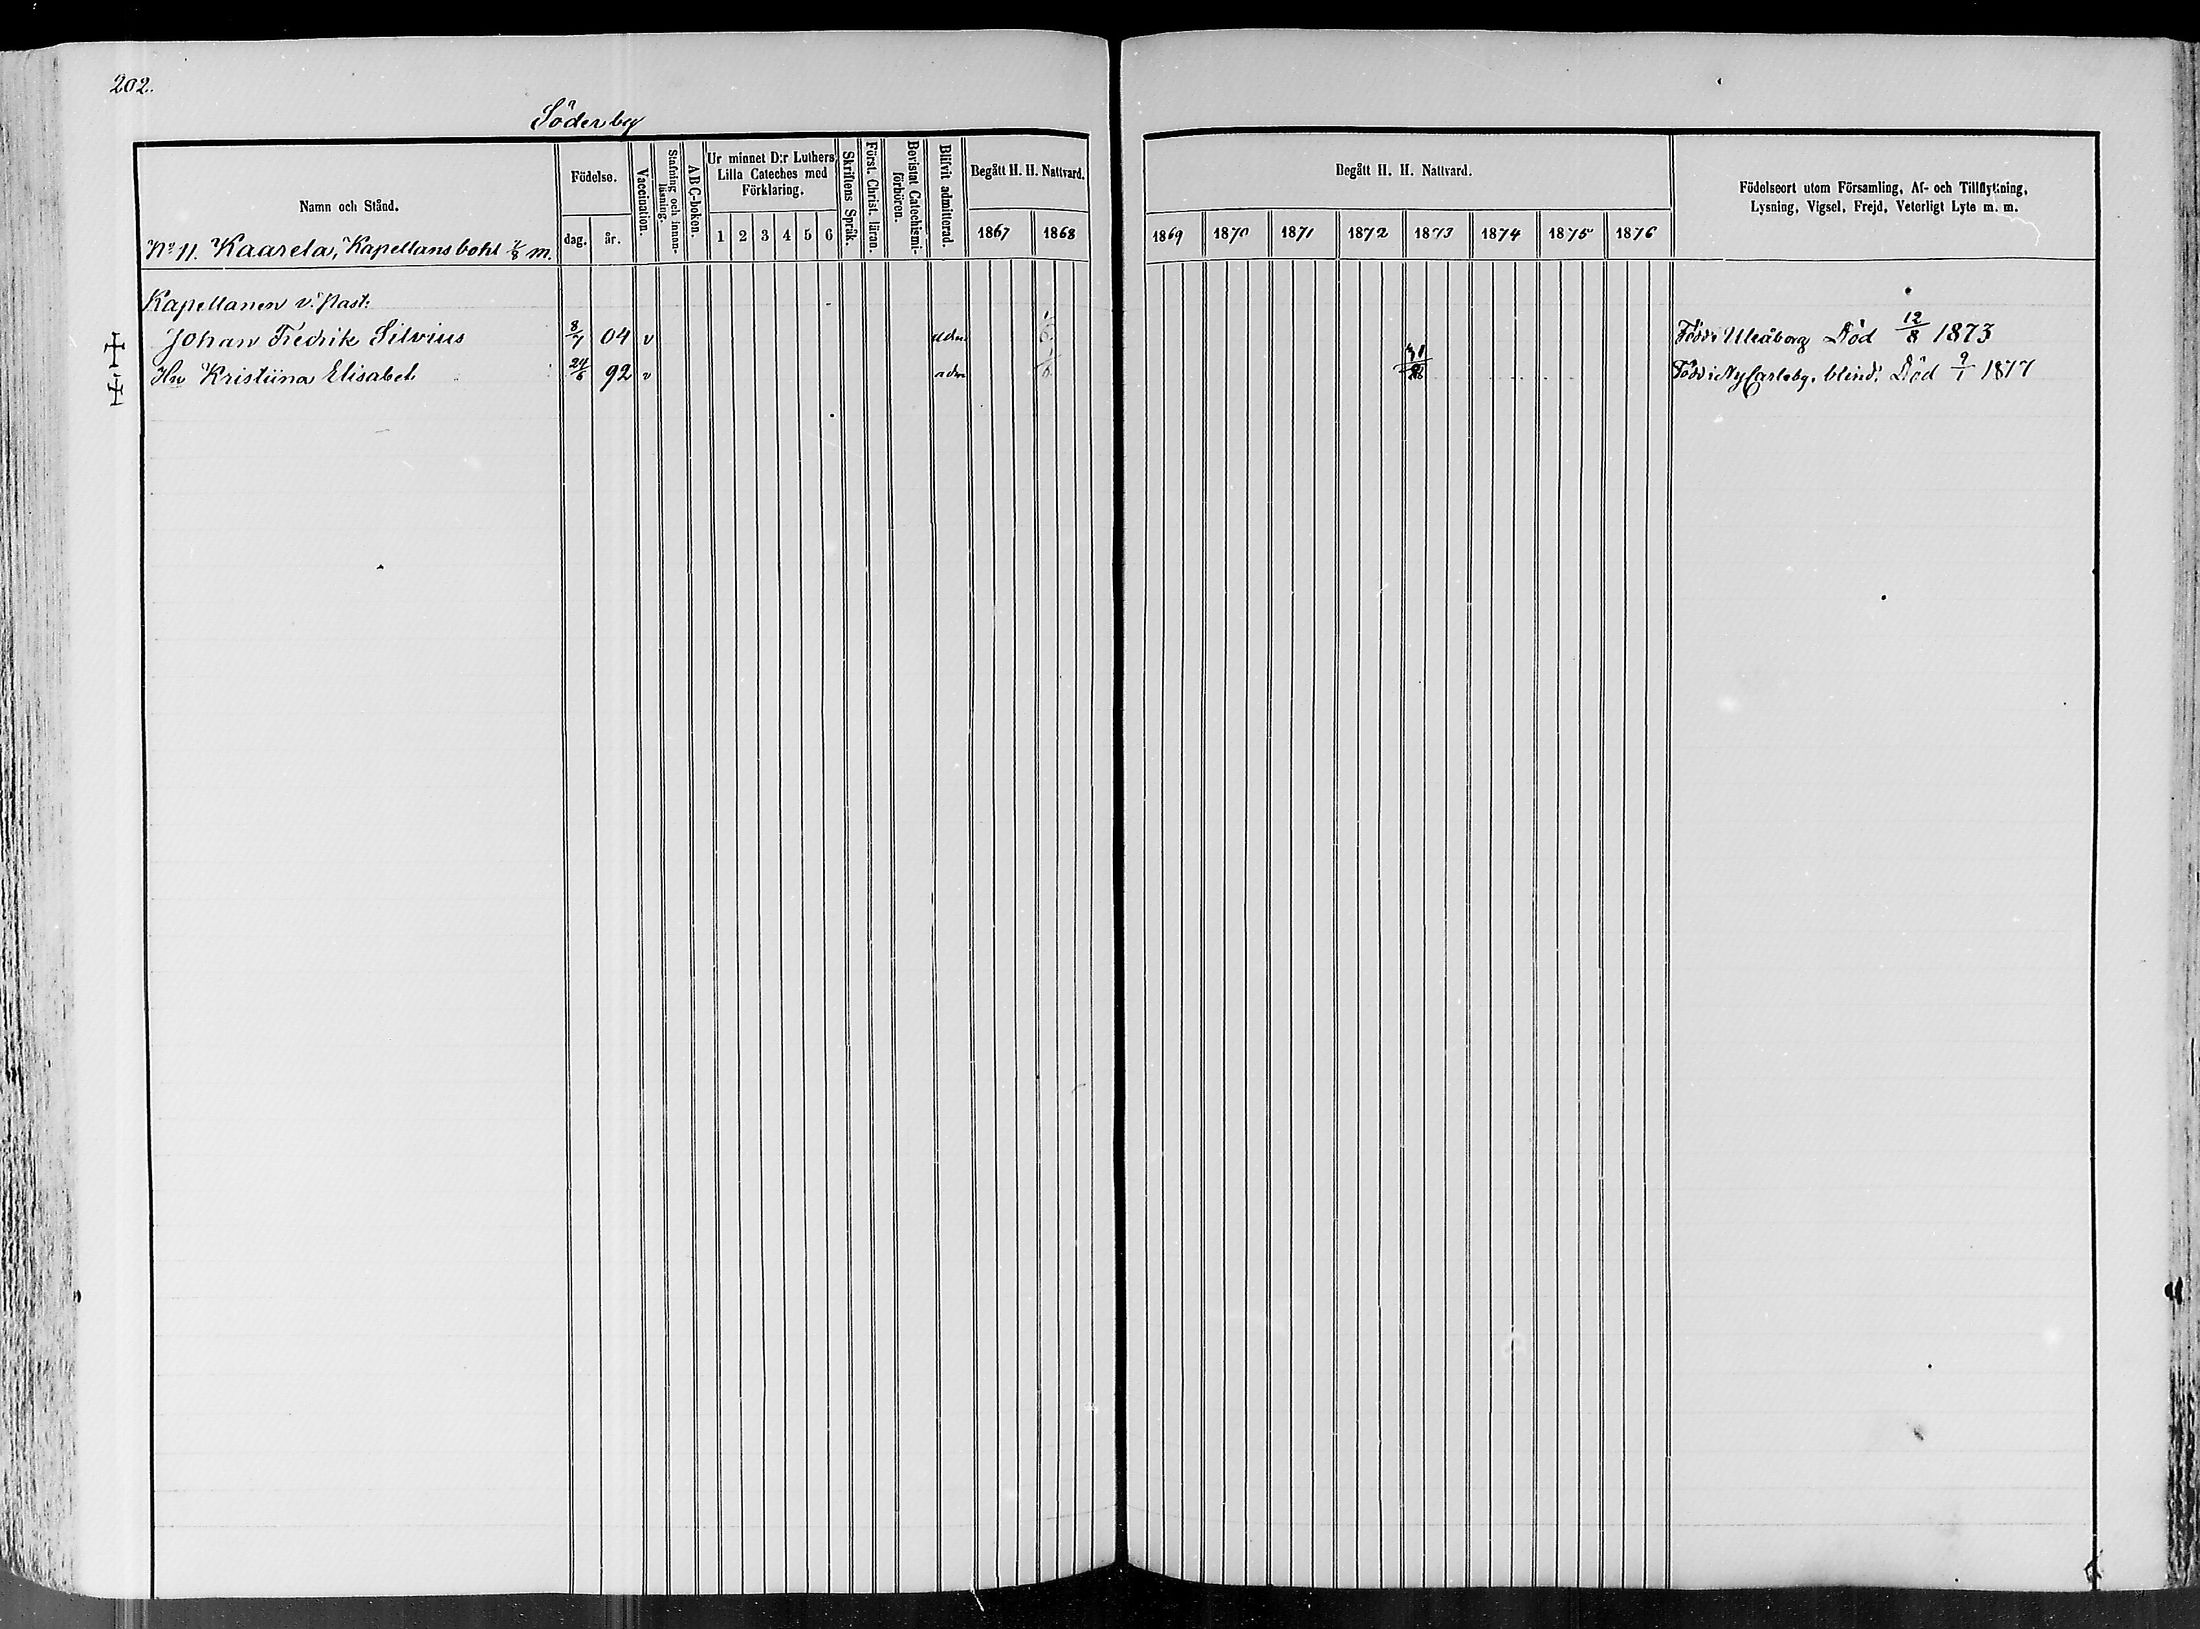 202.
Söderby
Namn och Stånd.
Födelse.
dag. år.
Vaccination.
Stafning och innan-läsning.
ABC-boken.
Ur minnet D:r Luthers Lilla Cateches med Förklaring.
1 2 3 4 5 6
Skriftens Språk.
Först. Christ. läran.
Bevistat Catechismi-förhören.
Blifvit admitterad.
Begått H. H. Nattvard.
1867 1868
Begått H. H. Nattvard.
1869 1870 1871 1872 1873 1874 1875 1876
Födelseort utom Församling, Af- och Tillflyttning,
Lysning, Vigsel, Frejd, Veterligt Lyte m. m.
No 11. Kaarela, Kapellansbohl 7/8 m.
Kapellanen v. Past:
Johan Fredrik Silvius 8/7 04 v adm Född i Uleåborg Död 12/8 1873
Hu Kristiina Elisabet 24/6 92 v adm Född i NyCarleby. blind. Död 9/1 1877